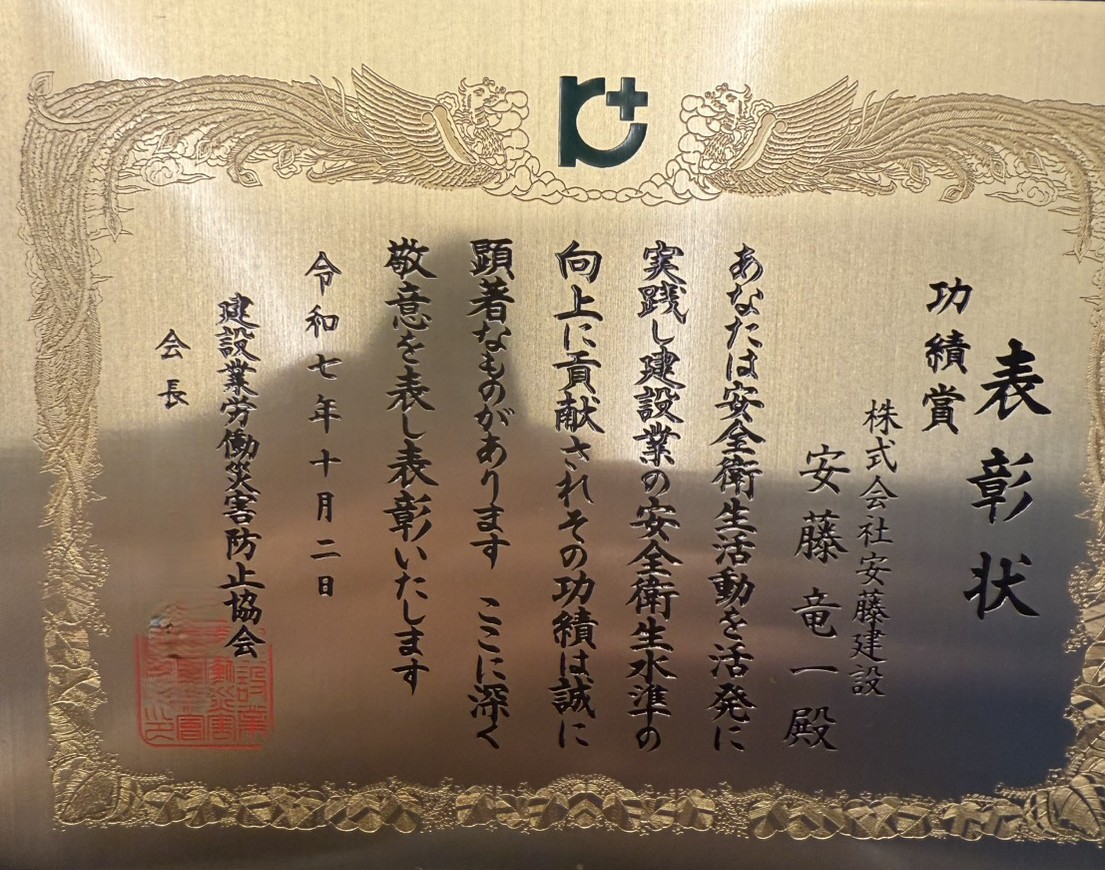 表彰状
功績賞
株式会社安藤建設
安藤竜一殿
あなたは安全衛生活動を活発に
実践し建設業の安全衛生水準の
向上に貢献されその功績は誠に
顕著なものがあります ここに深く
敬意を表し表彰いたします
令和七年十月二日
建設業労働災害防止協会
会長